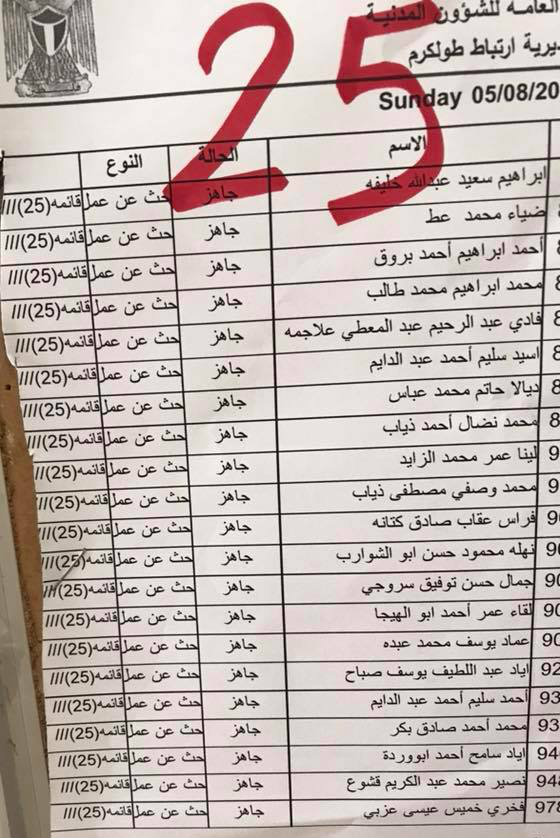 العامه للشؤون المدنية
ديرية ارتباط طولكرم
25
Sunday 05/08/20
الاسم الحالة النوع
ابراهيم سعيد عبدالله خليفه جاهز حث عن عمل قائمه(25)///
ضياء محمد عط جاهز حث عن عمل قائمه(25)///
أحمد ابراهيم أحمد بروق جاهز حث عن عمل قائمه(25)///
محمد ابراهيم محمد طالب جاهز حث عن عمل قائمه(25)///
8 فادي عبد الرحيم عبد المعطي علاجمه جاهز حث عن عمل قائمه(25)///
8 اسيد سليم أحمد عبد الدايم جاهز حث عن عمل قائمه(25)///
8 ديالا حاتم محمد عباس جاهز حث عن عمل قائمه(25)///
8 محمد نضال أحمد ذياب جاهز حث عن عمل قائمه(25)///
9 لينا عمر محمد الزايد جاهز حث عن عمل قائمه(25)///
9 محمد وصفي مصطفى ذياب جاهز حث عن عمل قائمه(25)///
90 فراس عقاب صادق كتانه جاهز حث عن عمل قائمه(25)///
90 نهله محمود حسن ابو الشوارب جاهز حث عن عمل قائمه(25)///
90 جمال حسن توفيق سروجي جاهز حث عن عمل قائمه(25)///
90 لقاء عمر أحمد ابو الهيجا جاهز حث عن عمل قائمه(25)///
90 عماد يوسف محمد عبده جاهز حث عن عمل قائمه(25)///
92 اياد عبد اللطيف يوسف صباح جاهز حث عن عمل قائمه(25)///
93 أحمد سليم أحمد عبد الدايم جاهز حث عن عمل قائمه(25)///
93 محمد أحمد صادق بكر جاهز حث عن عمل قائمه(25)///
94 اياد سامح أحمد ابووردة جاهز حث عن عمل قائمه(25)///
948 نصير محمد عبد الكريم قشوع جاهز حث عن عمل قائمه(25)///
978 فخري خميس عيسى عزبي جاهز حث عن عمل قائمه(25)///